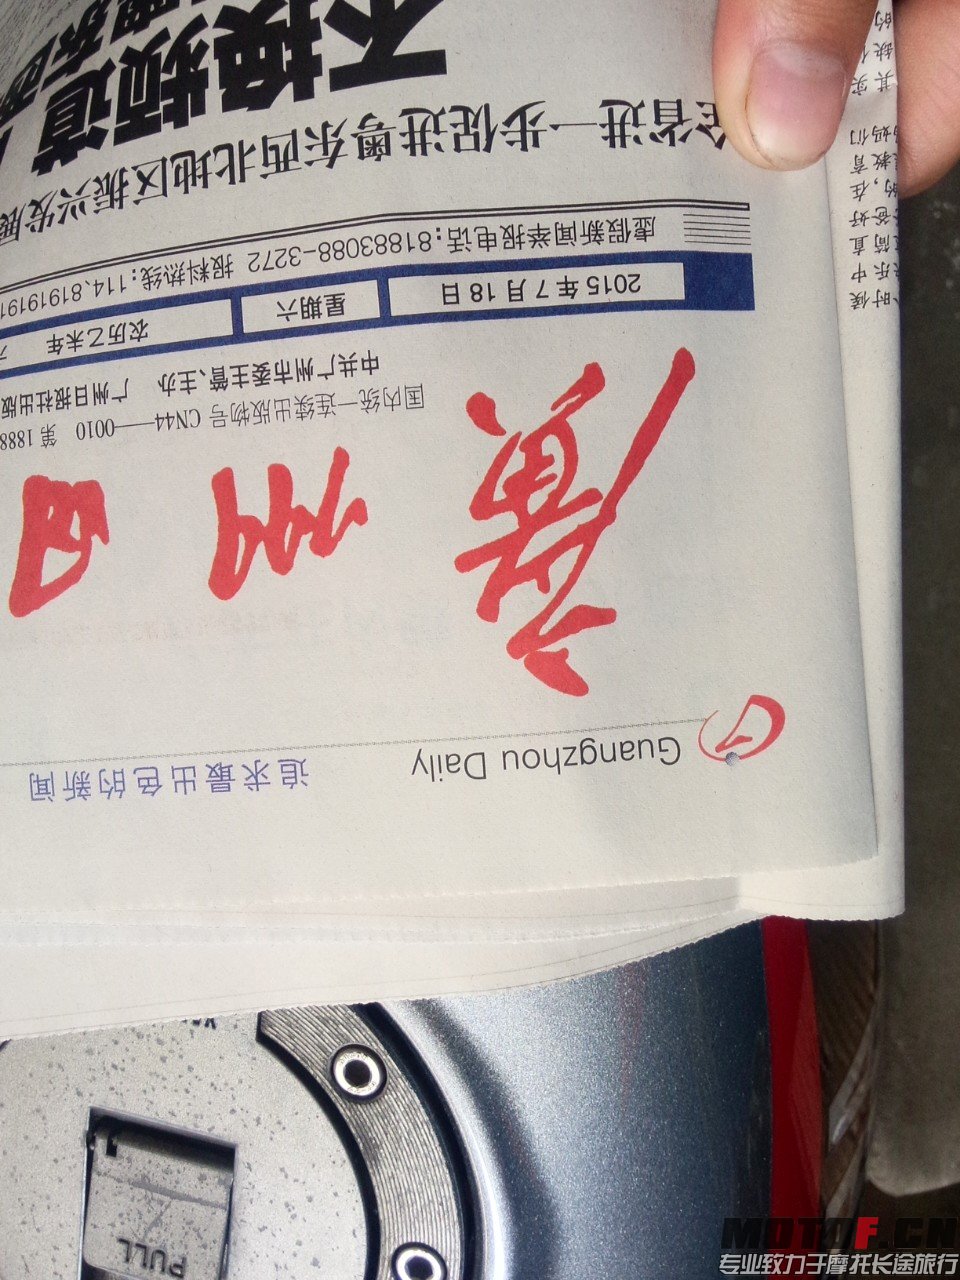 追求最出色的新闻
Guangzhou Daily
廣州日
国内统一连续出版物号 CN44——0010 第1888
中共广州市委主管、主办 广州日报社出版
2015年7月18日 星期六 农历乙未年
虚假新闻举报电话:81883088-3272 报料热线:114,8191919
全省进一步促进粤东西北地区振兴发展
不换频道
PULL
MOTOF.CN
专业致力于摩托长途旅行